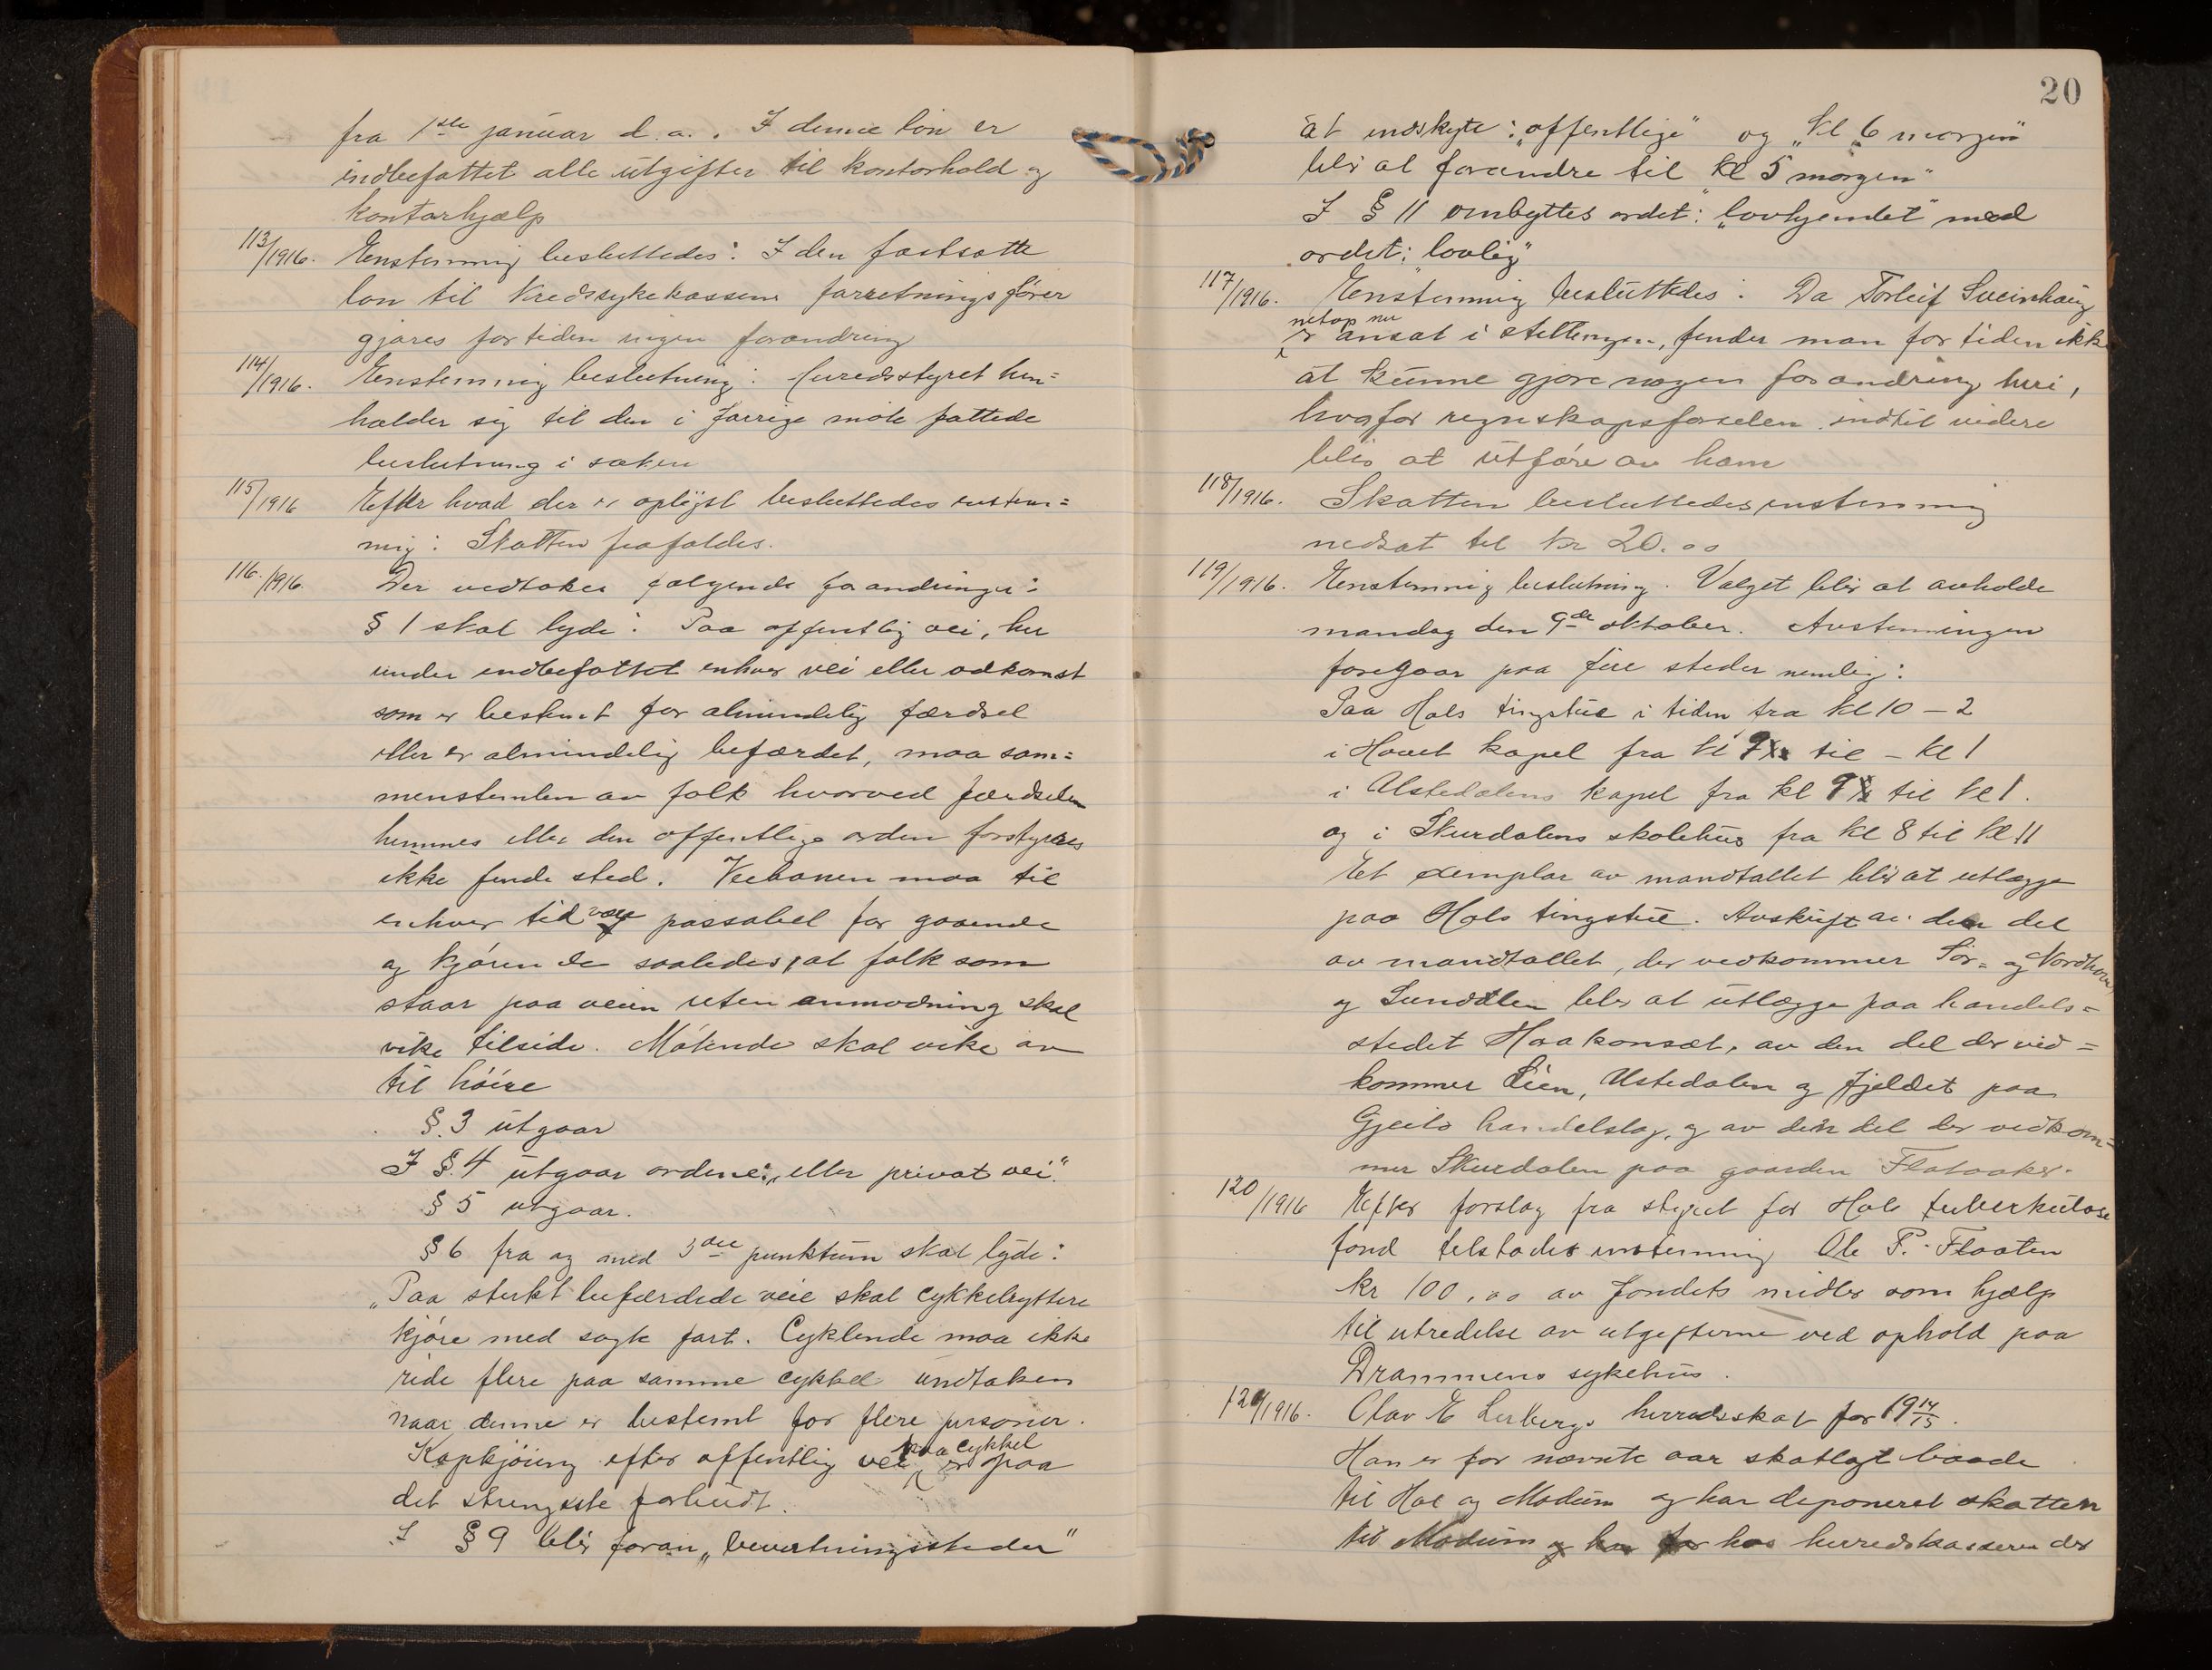 fra 1ste januar d.a. I denne løn er
indbefattet alle utgifter til kontorhold og
kontorhjælp
113/1916. Enstemmig besluttedes: I den fastsatte
løn til Kredssykekassens forretningsfører
gjøres for tiden ingen forandring
114/1916. Enstemmig beslutning: Herredsstyret hen=
holder sig til den i forrige møte fattede
beslutning i saken
115/1916 Efter hvad der er oplyst besluttedes enstem=
mig: Skatten frafaldes.
116./1916. Der vedtokes følgende forandringer:
§ 1 skal lyde: Paa offentlig vei, her
under indbefattet enhver vei eller adkomst
som er bestemt for almindelig færdsel
eller er almindelig befærdet, maa sam=
menstemlen av folk hvorved færdselen
hemmes eller den offentlige orden forstyrres
ikke finde sted. Veibanen maa til
enhver tid være passabel for gaaende
og kjørende saaledes, at folk som
staar paa veien uten anmodning skal
vike tilside. Møtende skal vike av
til høire
§.3 utgaar
I §.4 utgaar ordene: „eller privat vei".
§ 5 utgaar.
§ 6 fra og med 3die punktum skal lyde:
„Paa sterkt befærdede veie skal cykkelryttere
kjøre med sagte fart. Cyklende maa ikke
ride flere paa samme cykkel undtaken
naar denne er bestemt for flere personer.
Kapkjøring efter offentlig vei paa cykkel er paa
det strengeste forbudt.
I § 9 blir foran „bevertningssteder"
20
at indskyte: „offentlige" og „Kl 6 morgen"
blir at forandre til "Kl 5 morgen"
I § 11 ombyttes ordet: „lovhjemlet" med
ordet: „lovlig"
117/1916. Enstemmig besluttedes: Da Torleif Sveinhaug
netop nu
er ansat i stillingen, finder man for tiden ikke
at kunne gjøre nogen forandring heri,
hvorfor regnskapsførselen indtil videre
blir at utføre av ham
118/1916. Skatten besluttedes enstemmig
nedsat til kr 20.00
119/1916. Enstemmig beslutning. Valget blir at avholde
mandag den 9de oktober. Avstemningen
foregaar paa fire steder nemlig:
Paa Hols tingstue i tiden fra kl 10 – 2
i Hovet kapel fra kl 9 til – kl 1
i Ustedalens kapel fra kl 9 til kl 1.
og i Skurdalens skolehus fra kl 8 til kl 11
Et exemplar av mandtallet blir at utlægge
paa Hols tingstue. Avskrift av den del
av mandtallet, der vedkommer Sør= og Nordhove
og Sunddlen blir at utlægge paa handels=
stedet Haakonsæt, av den del der ved=
kommer Lien, Ustedalen og Fjeldet paa
Gjeilo handelslag, og av den del der vedkom=
mer Skurdalen paa gaarden Flataaker.
120/1916 Efter forslag fra styret for Hols tuberkulose
fond tilstodes enstemmig Ole P. Flaaten
kr 100,00 av fondets midler som hjælp
til utredelse av utgifterne ved ophold paa
Drammens sykehus.
120/1916. Olav E Lerbergs herredsskat for 19 14/15.
Han er for nævnte aar skatlagt baade
til Hol og Modum og har deponeret skatten
til Modum hos herredskasseren der